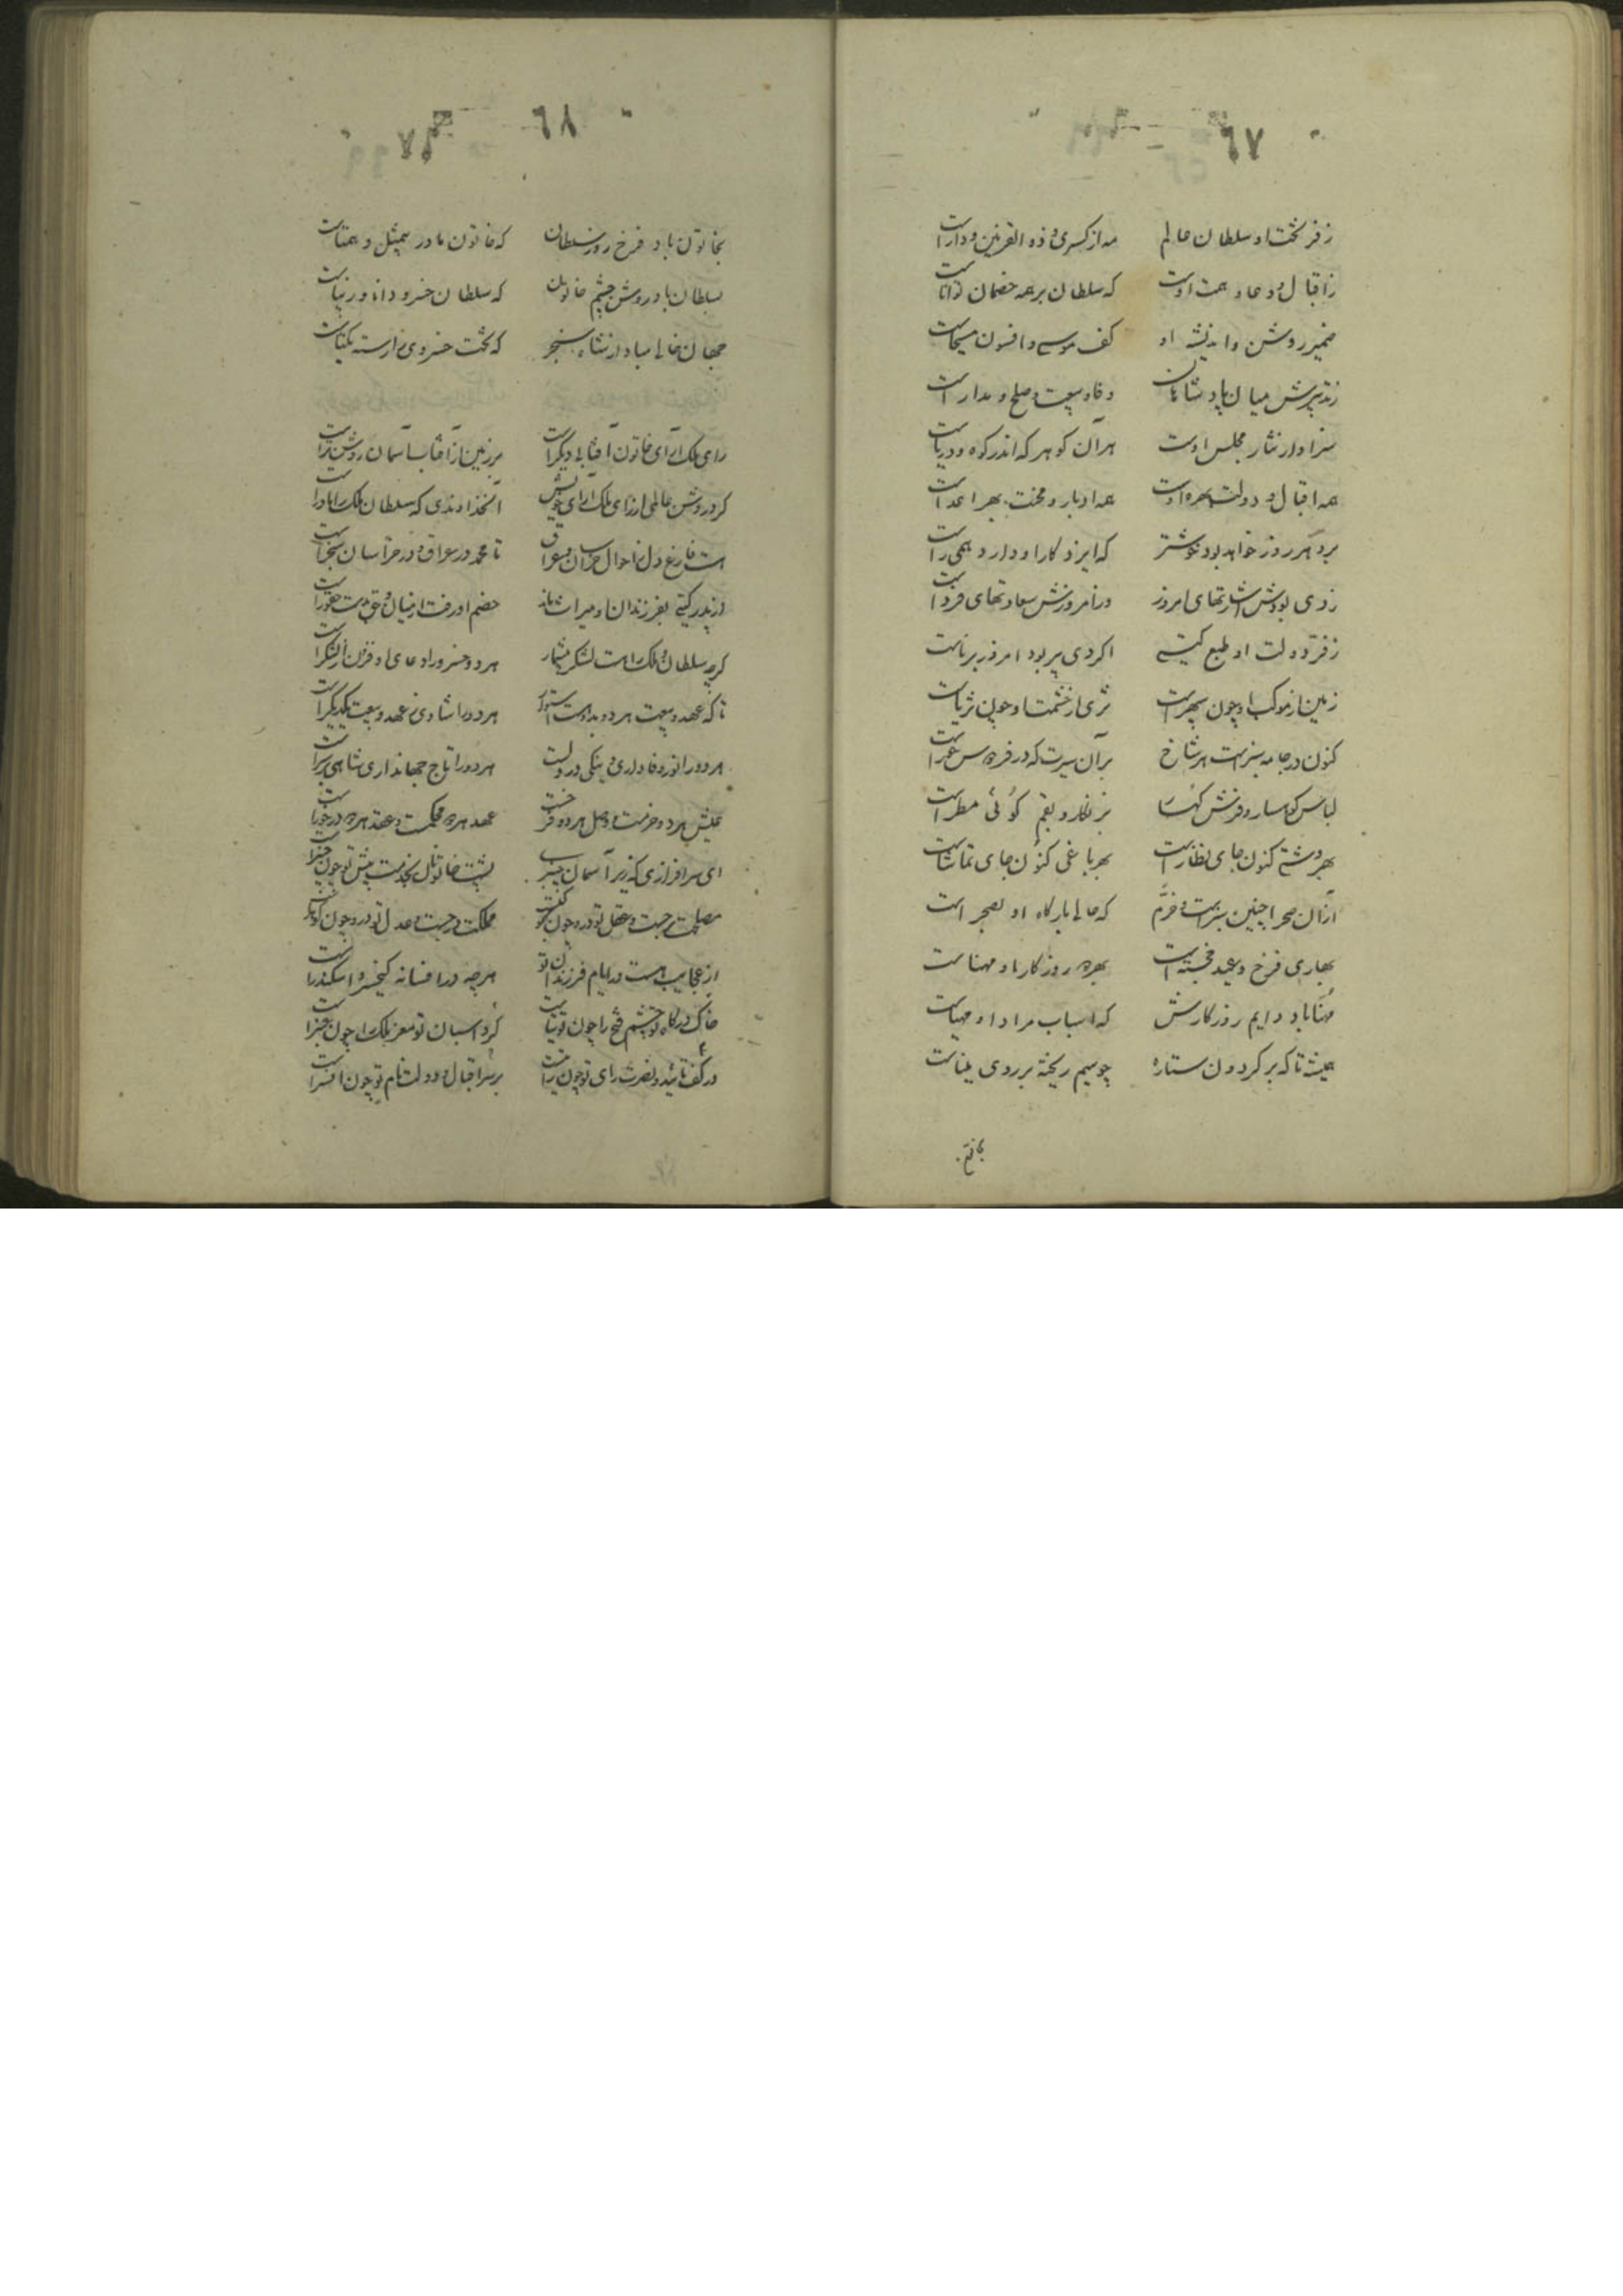 ٦٧
ز فر بخت او سلطان عالم مه از کسری و ذو القرنین و داراست
ز اقبال و دعا و همت اوست که سلطان بر همه خصمان تواناست
ضمیر روشن و اندیشه او کف موسی و افسون مسیحاست
ز تدبیرش میان پادشاهان وفا و بیعت و صلح و مداراست
سزاوار نثار مجلس اوست هر آن گوهر که اندر کوه و دریاست
همه اقبال و دولت بهره اوست همه ادبار و محنت بهر اعداست
برو هر روز خواهد بود خوشتر که ایزد کار او دارد همی راست
ز دی بودش اشارتهای امروز در امروزش سعادتهای فرداست
ز فر دولت او طبع گیتی اگر دی پیر بود امروز برناست
زمین از موکب او چون سپهر است ثری از حشمت او چون ثریاست
کنون در جامه سبز است هر شاخ بر آن سیرت که در فردوس حوراست
لباس کوهسار و فرش کهسا بزنگار و بقم گوئی مطراست
بهر دشتی کنون جای نظاره است بهر باغی کنون جای تماشاست
از آن صحرا چنین سبز است و خرم که عالی بارگاه او بصحراست
بهاری فرخ و عیدی خجسته است بهر دو روزگار او مهناست
مهنا باد دایم روزگارش که اسباب مراد او مهیاست
همیشه تا که بر گردون ستاره چو سیم ریخته بر روی میناست
بخاتون
٦٨
بخاتون باد فرخ روز سلطان که خاتون مادر بیمثل و همتاست
بسلطان باد روشن چشم خاتون که سلطان خسرو دانا و برناست
جهان خالی مباد از شاه سنجر که تخت خسروی زو آراسته یکتاست
رای ملک آرای خاتون آفتابی دیگر است بر زمین از آفتاب آسمان روشن تر است
کرد روشن عالمی از رای ملک آرای خویش آن خداوندی که سلطان ملک را مادر است
هست فارغ دل ز احوال خراسان و عراق تا محمد در عراق و در خراسان سنجر است
از پدر گیتی بفرزندان او میراث ماند خصم او رفت از میان و حق بدست حقور است
گرچه سلطان و ملک را هست لشکر بیشمار هر دو خسرو را دعای او فزون از لشکر است
تا که عهد و بیعت هر دو بدو هست استوار هر دو را شادی ز عهد و بیعت یکدیگر است
هر دو را نور وفاداری و نیکی در دلست هر دو را تاج جهانداری و شاهی بر سر است
عیش هر دو خرمست و وصل هر دو فرخست عهد هر دو محکمست و عقد هر دو درخور است
ای سرافرازی که زیر آسمان چنبری پشت خاتونان بخدمت پیش تو چون چنبر است
مصلحت برجست و عقل تو درو چون کوکبست مملکت درجست و عدل تو درو چون گوهر است
از عجایب هست در ایام فرزندان تو هر چه در افسانه کیخسرو و اسکندر است
خاک درگاه تو چشم فتح را چون توتیاست گرد اسبان تو مغز ملک را چون عنبر است
در کف تائید و نصرت رای تو چون رایتست بر سر اقبال و دولت نام تو چون افسر است